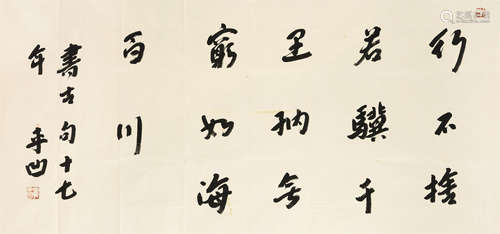 行不捨
若驥千
里納無
窮如海
百川
書古句十七
年平凹